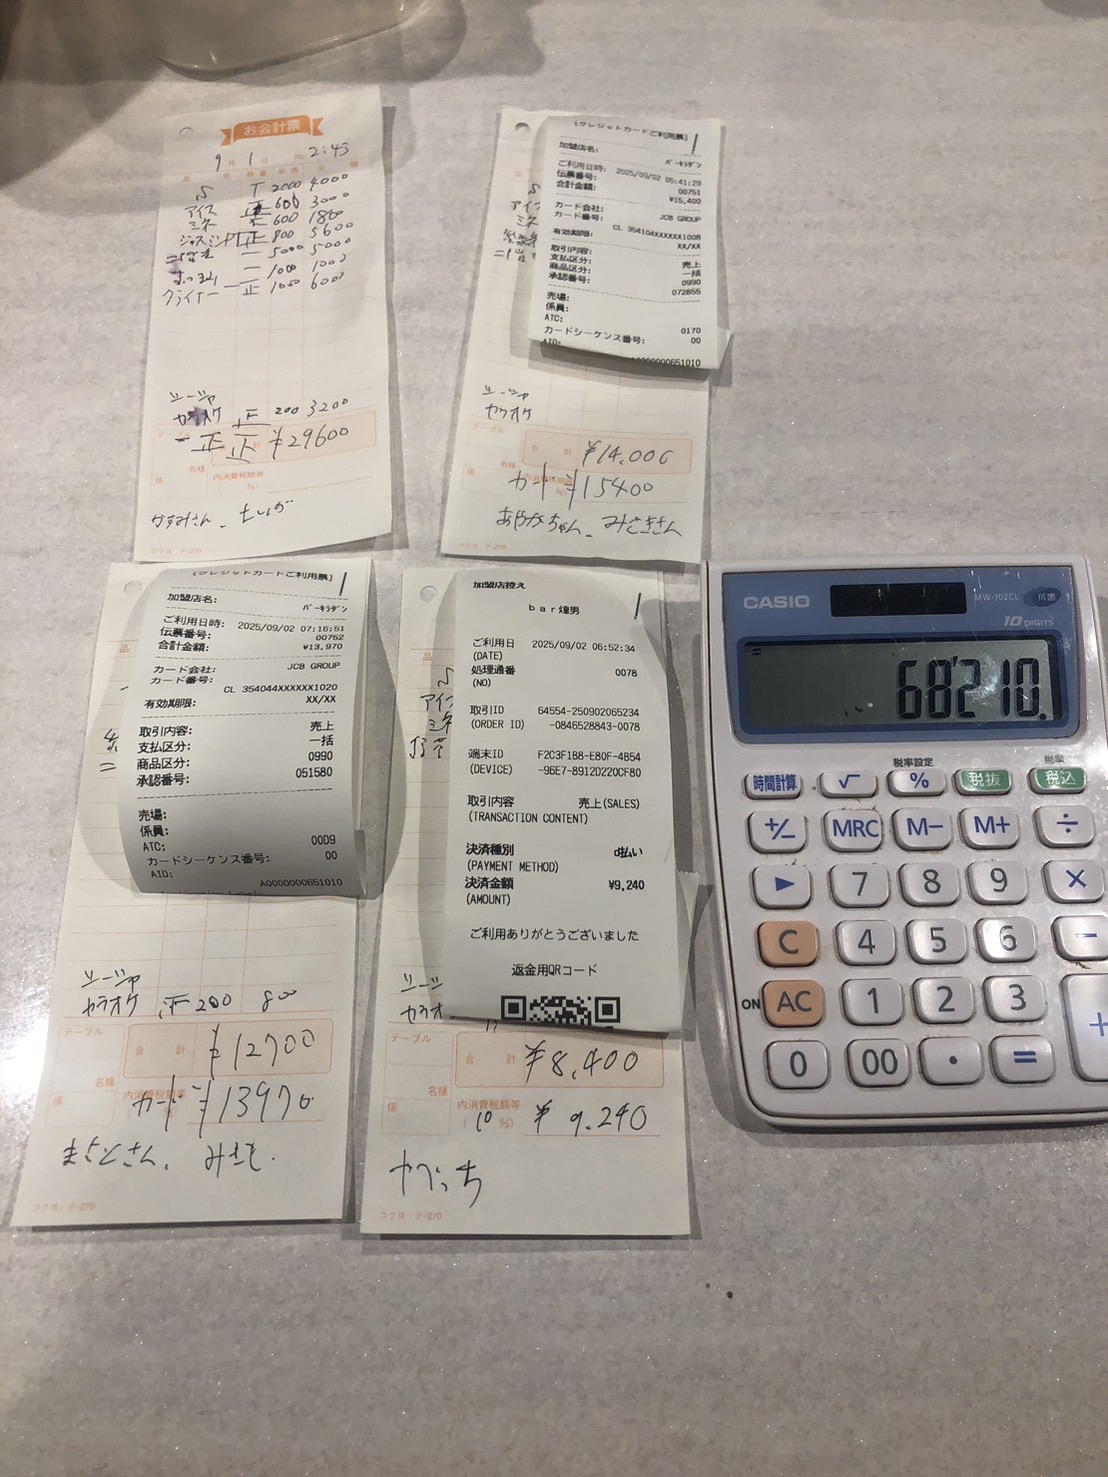 お会計票
9月1日 No. 2:45
S T 2000 4000
アイス 正 600 3000
ミネ 600 1800
ジャスミン 正T 800 5600
一 5000 5000
一 1000 1000
クライナー 一正 1000 6000
ソーシャ
カラオケ 正 200 3200
一正正 計 ¥29600
名様
係 内消費税額等
%)
かすみさん、
コクヨ テ-270
[クレジットカードご利用票]
加盟店名:
バーキラダン
ご利用日時: 2025/09/02 05:41:29
伝票番号: 00751
合計金額: ¥15,400
カード会社: JCB GROUP
カード番号:
CL 354104XXXXXX1008
有効期限: XX/XX
取引内容: 売上
支払区分: 一括
商品区分: 0990
承認番号: 072855
売場:
係員:
ATC: 0170
カードシーケンス番号: 00
AID: A0000000651010
S
アイ
ミネ
ソーシャ
カラオケ
テーブル
合計 ¥14,000
名様
カード ¥15400
係
あやかちゃん、みさきさん
コクヨ テ-270
[クレジットカードご利用票]
加盟店名:
バーキラダン
ご利用日時: 2025/09/02 07:16:51
伝票番号: 00752
合計金額: ¥13,970
カード会社: JCB GROUP
カード番号:
CL 354044XXXXXX1020
有効期限: XX/XX
取引内容: 売上
支払区分: 一括
商品区分: 0990
承認番号: 051580
売場:
係員:
ATC: 00D9
カードシーケンス番号: 00
AID: A0000000651010
ソーシャ
カラオケ 正 200 800
テーブル
合計 ¥12700
名様
係 内消費税額等
カード ¥13970
コクヨ テ-270
加盟店控え
bar煌男
ご利用日 2025/09/02 06:52:34
(DATE)
処理通番 0078
(NO)
取引ID 64554-250902065234
(ORDER ID) -0846528843-0078
端末ID F2C3F1B8-E80F-4854
(DEVICE) -96E7-8912D220CF80
取引内容 売上(SALES)
(TRANSACTION CONTENT)
決済種別 d払い
(PAYMENT METHOD)
決済金額 ¥9,240
(AMOUNT)
ご利用ありがとうございました
返金用QRコード
S
アイス
ミネ
お茶
ソーシ
カラオ
テーブル
合計 ¥8,400
名様
係 内消費税額等
(10%) ¥9.240
やべっち
コクヨ テ-270
CASIO
MW-102CL 抗菌
10 DIGITS
68'210.
税率設定 税率
時間計算 √ % 税抜 税込
+/- MRC M- M+ ÷
▶ 7 8 9 ×
C 4 5 6 −
ON AC 1 2 3 +
0 00 · =